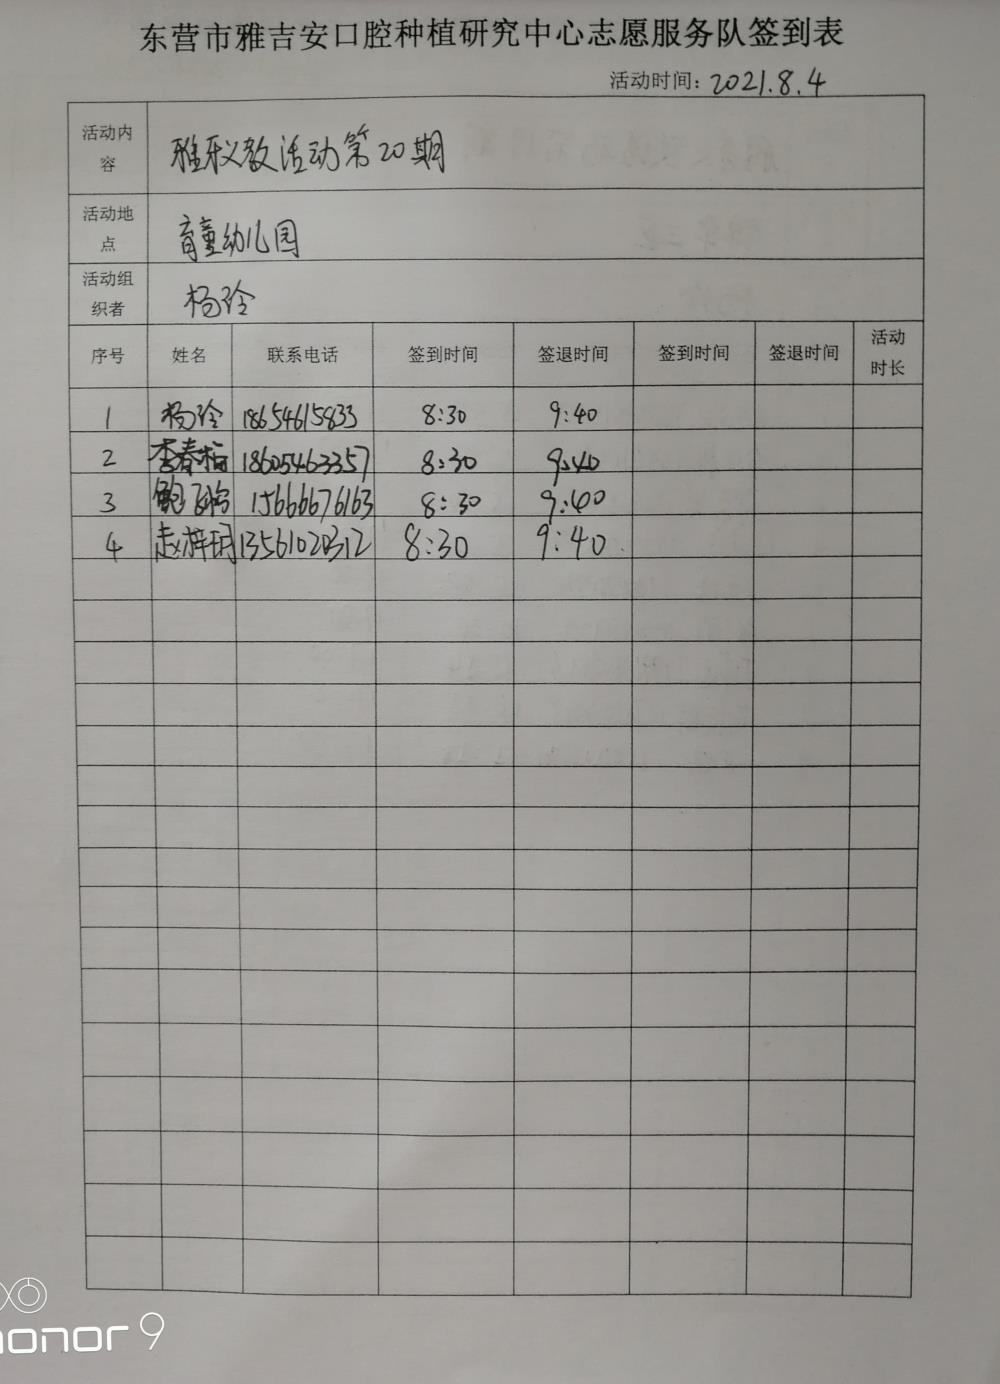 东营市雅吉安口腔种植研究中心志愿服务队签到表
活动时间：2021.8.4
活动内容 雅乐义教活动第20期
活动地点 育童幼儿园
活动组织者 杨玲
序号 姓名 联系电话 签到时间 签退时间 签到时间 签退时间 活动时长
1 杨玲 18654615833 8:30 9:40
2 李春梅 18605463357 8:30 9:40
3 鲍飞 15666676163 8:30 9:40
4 赵梓玥 13561020312 8:30 9:40
honor 9